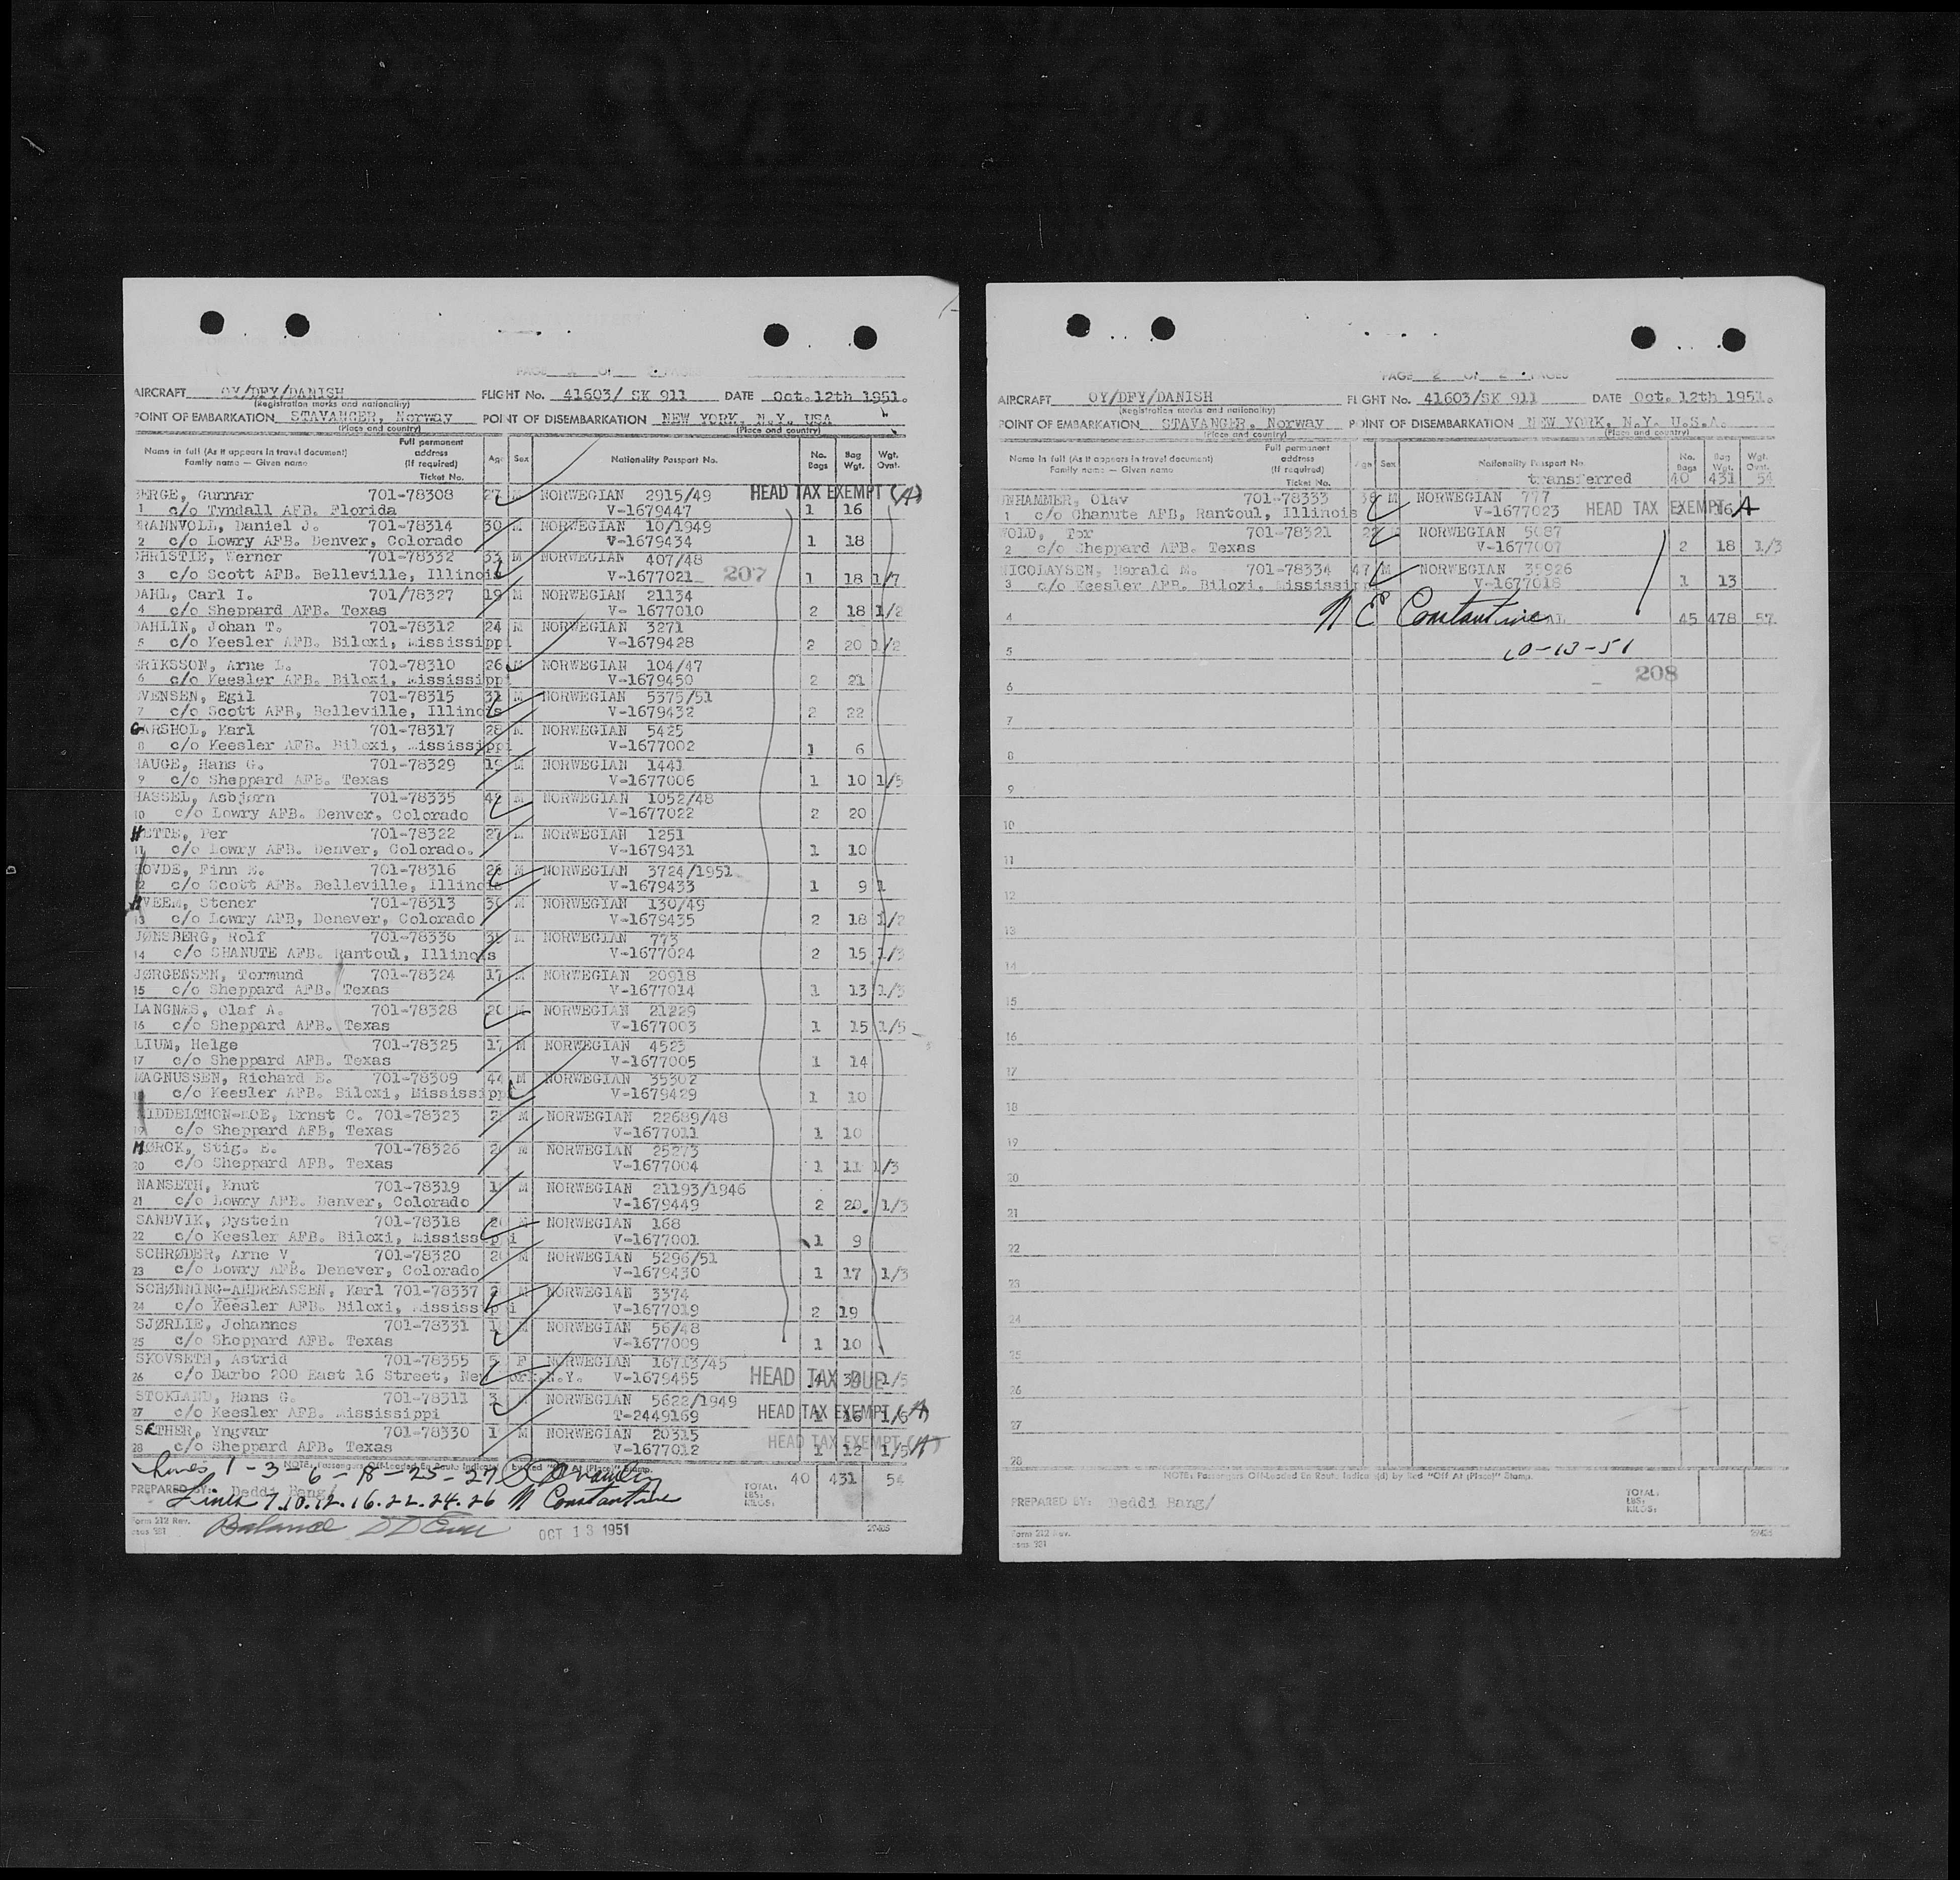 AIRCRAFT OY/DFY/DANISH FLIGHT No. 41603/ SK 911 DATE Oct. 12th 1951.
(Registration marks and nationality)
POINT OF EMBARKATION STAVANGER, Norway POINT OF DISEMBARKATION NEW YORK, N.Y. USA
(Place and country) (Place and country)
Name in full (As it appears in travel document) Family name — Given name Full permanent address (If required) Ticket No. Age Sex Nationality Passport No. No. Bags Bag Wgt. Wgt. Ovnt.
BERGE, Gunnar 701-78308 27 M NORWEGIAN 2915/49 HEAD TAX EXEMPT (A)
1 c/o Tyndall AFB. Florida V-1679447 1 16
BRANNVOLL, Daniel J. 701-78314 30 M NORWEGIAN 10/1949
2 c/o Lowry AFB. Denver, Colorado V-1679434 1 18
CHRISTIE, Werner 701-78332 33 M NORWEGIAN 407/48
3 c/o Scott AFB. Belleville, Illinois V-1677021 207 1 18 1/7
DAHL, Carl I. 701/78327 19 M NORWEGIAN 21134
4 c/o Sheppard AFB. Texas V- 1677010 2 18 1/2
DAHLIN, Johan T. 701-78312 24 M NORWEGIAN 3271
5 c/o Keesler AFB. Biloxi, Mississippi V-1679428 2 20 1/2
ERIKSSON, Arne L. 701-78310 26 M NORWEGIAN 104/47
6 c/o Keesler AFB. Biloxi, Mississippi V-1679450 2 21
EVENSEN, Egil 701-78315 31 M NORWEGIAN 5375/51
7 c/o Scott AFB, Belleville, Illinois V-1679432 2 22
GARSHOL, Karl 701-78317 28 M NORWEGIAN 5425
8 c/o Keesler AFB. Biloxi, Mississippi V-1677002 1 6
HAUGE, Hans G. 701-78329 19 M NORWEGIAN 1441
9 c/o Sheppard AFB. Texas V-1677006 1 10 1/5
HASSEL, Asbjørn 701-78335 42 M NORWEGIAN 1052/48
10 c/o Lowry AFB. Denver, Colorado V-1677022 2 20
HETTE, Per 701-78322 27 M NORWEGIAN 1251
11 c/o Lowry AFB. Denver, Colorado. V-1679431 1 10
HOVDE, Finn E. 701-78316 26 M NORWEGIAN 3724/1951
12 c/o Scott AFB. Belleville, Illinois V-1679433 1 9 1
HVEEM, Stener 701-78313 30 M NORWEGIAN 130/49
13 c/o Lowry AFB, Denever, Colorado V-1679435 2 18 1/2
JØNSBERG, Rolf 701-78336 35 M NORWEGIAN 773
14 c/o SHANUTE AFB. Rantoul, Illinois V-1677024 2 15 1/3
JØRGENSEN, Tormund 701-78324 17 M NORWEGIAN 20918
15 c/o Sheppard AFB. Texas V-1677014 1 13 1/3
LANGNÆS, Olaf A. 701-78328 20 M NORWEGIAN 21229
16 c/o Sheppard AFB. Texas V-1677003 1 15 1/5
LIUM, Helge 701-78325 17 M NORWEGIAN 4523
17 c/o Sheppard AFB. Texas V-1677005 1 14
MAGNUSSEN, Richard E. 701-78309 44 M NORWEGIAN 35302
18 c/o Keesler AFB. Biloxi, Mississippi V-1679429 1 10
MIDDELTHON-MOE, Ernst C. 701-78323 2 M NORWEGIAN 22689/48
19 c/o Sheppard AFB, Texas V-1677011 1 10
MØRCK, Stig. E. 701-78326 2 M NORWEGIAN 25273
20 c/o Sheppard AFB. Texas V-1677004 1 11 1/3
NANSETH, Knut 701-78319 1 M NORWEGIAN 21193/1946
21 c/o Lowry AFB. Denver, Colorado V-1679449 2 20. 1/3
SANDVIK, Øystein 701-78318 2 M NORWEGIAN 168
22 c/o Keesler AFB. Biloxi, Mississippi V-1677001 1 9
SCHRØDER, Arne V. 701-78320 2 M NORWEGIAN 5296/51
23 c/o Lowry AFB. Denever, Colorado V-1679430 1 17 1/3
SCHØNNING-ANDREASSEN, Karl 701-78337 2 M NORWEGIAN 3374
24 c/o Keesler AFB. Biloxi, Mississippi V-1677019 2 19
SJØRLIE, Johannes 701-78331 1 M NORWEGIAN 56/48
25 c/o Sheppard AFB. Texas V-1677009 1 10
SKOVSETH, Astrid 701-78355 5 F NORWEGIAN 16713/45
26 c/o Darbo 200 East 16 Street, New York.N.Y. V-1679455 HEAD TAX DUE 4 34 1/5
STOKLAND, Hans G. 701-78311 3 M NORWEGIAN 5622/1949
27 c/o Keesler AFB. Mississippi T-2449169 HEAD TAX EXEMPT (A) 1 16 1/6
SÆTHER, Yngvar 701-78330 1 M NORWEGIAN 20315
28 c/o Sheppard AFB. Texas V-1677012 HEAD TAX EXEMPT (A) 1 12 1/5
NOTE: Passengers Off-Loaded En Route Indicated by Red "Off At (Place)" Stamp.
Lines 1-3-6-18-25-27
PREPARED BY: Deddi Bang/ TOTAL: LBS: KILOS: 40 431 54
Lines 7.10.12.16.22.24.26 N Constantine
Balance
Form 212 Rev. OCT 13 1951
PAGE 2 OF 2 PAGES
AIRCRAFT OY/DFY/DANISH FLIGHT No. 41603/SK 911 DATE Oct. 12th 1951.
(Registration marks and nationality)
POINT OF EMBARKATION STAVANGER. Norway POINT OF DISEMBARKATION NEW YORK, N.Y. U.S.A.
(Place and country) (Place and country)
Name in full (As it appears in travel document) Family name — Given name Full permanent address (If required) Ticket No. Age Sex Nationality Passport No. No. Bags Bag Wgt. Wgt. Ovnt.
transferred 40 431 54
UNHAMMER, Olav 701-78333 38 M NORWEGIAN 777
1 c/o Chanute AFB, Rantoul, Illinois V-1677023 HEAD TAX EXEMPT A 16
WOLD, Tor 701-78321 NORWEGIAN 5087
2 c/o Sheppard AFB. Texas V-1677007 2 18 1/3
NICOLAYSEN, Harald M. 701-78334 47 M NORWEGIAN 35926
3 c/o Keesler AFB. Biloxi. Mississippi V-1677018 1 13
4 N E Constantine 45 478 57
5 10-13-51
6 208
7
8
9
10
11
12
13
14
15
16
17
18
19
20
21
22
23
24
25
26
27
28
NOTE: Passengers Off-Loaded En Route Indicated by Red "Off At (Place)" Stamp.
PREPARED BY: Deddi Bang/ TOTAL: LBS: KILOS:
Form 212 Rev.